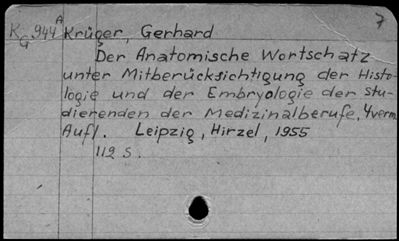 KG944A Krüger, Gerhard 7
Der Anatomische Wortschatz
unter Mitberücksichtigung der Histo-
logie und der Embryologie der stu-
dierenden der Medizinalberufe, 4verm.
Aufl. Leipzig, Hirzel, 1955
112 S.